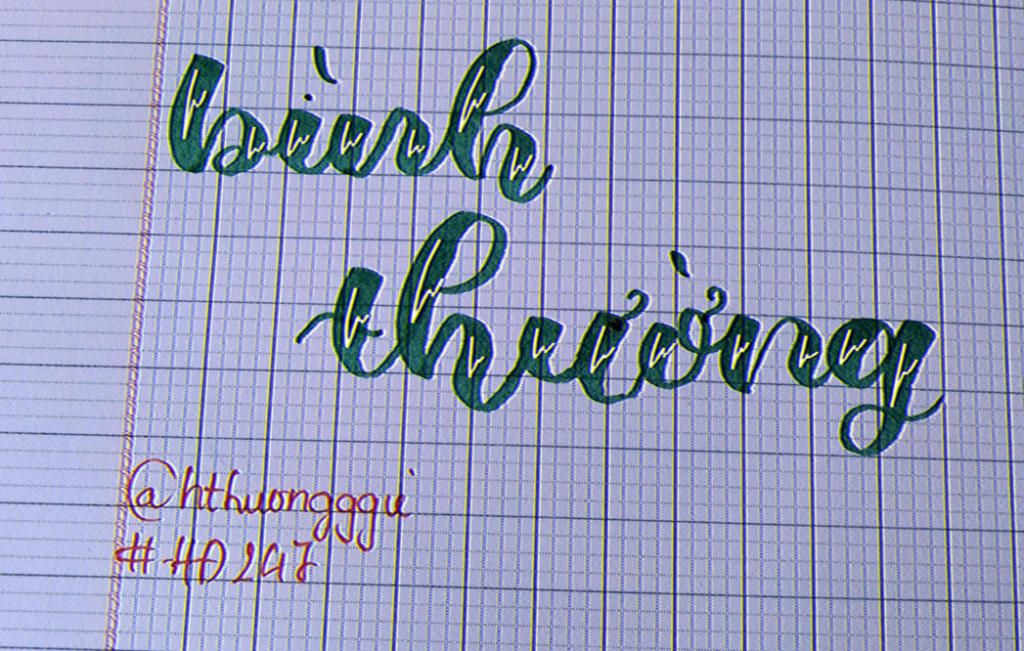 bình
thường
@hthuongggui
#HD247